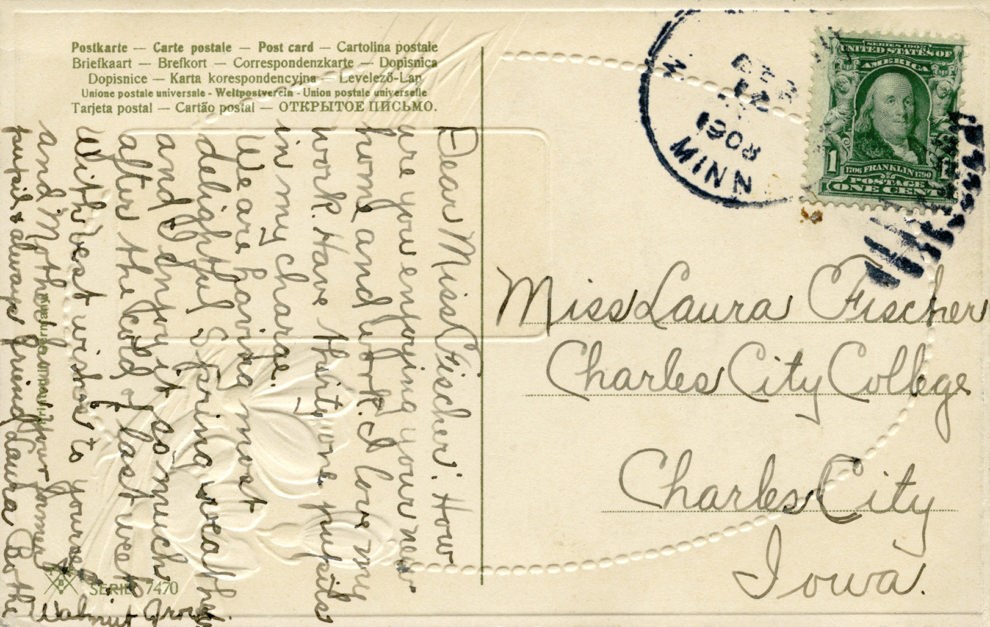 Postkarte — Carte postale — Post card — Cartolina postale
Briefkaart — Brefkort — Correspondenzkarte — Dopisnica
Dopisnice — Karta korespondencyjna — Levelező-Lap
Unione postale universale - Weltpostverein - Union postale universelle
Tarjeta postal — Cartão postal — ОТКРЫТОЕ ПИСЬМО.
Dear Miss Fischer: How
are you enjoying your new
home and work. I love my
work. Have thirty one pupils
in my charge.
We are having most
delightful Spring weather
and I enjoy it so much
after the cold of last week
With best wishes to yourself
and Mother, your former
pupil & always friend Laura
Walnut Grove
SERIE 7470
1908
MINN
SERIES 1902
UNITED STATES OF
AMERICA
1706 FRANKLIN 1790
POSTAGE
ONE CENT
1
Miss Laura Fischer
Charles City College
Charles City
Iowa.